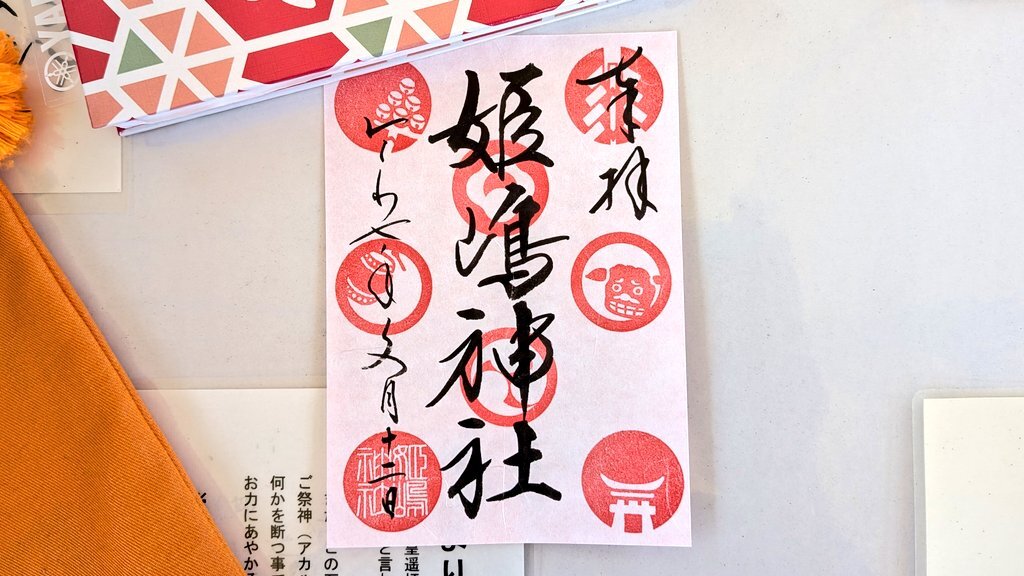 奉拝
姫嶋神社
令和七年文月十二日
姫嶋
神社
YA
より
と言
この
ご祭神（アカル
何かを断つ事
お力にあやか